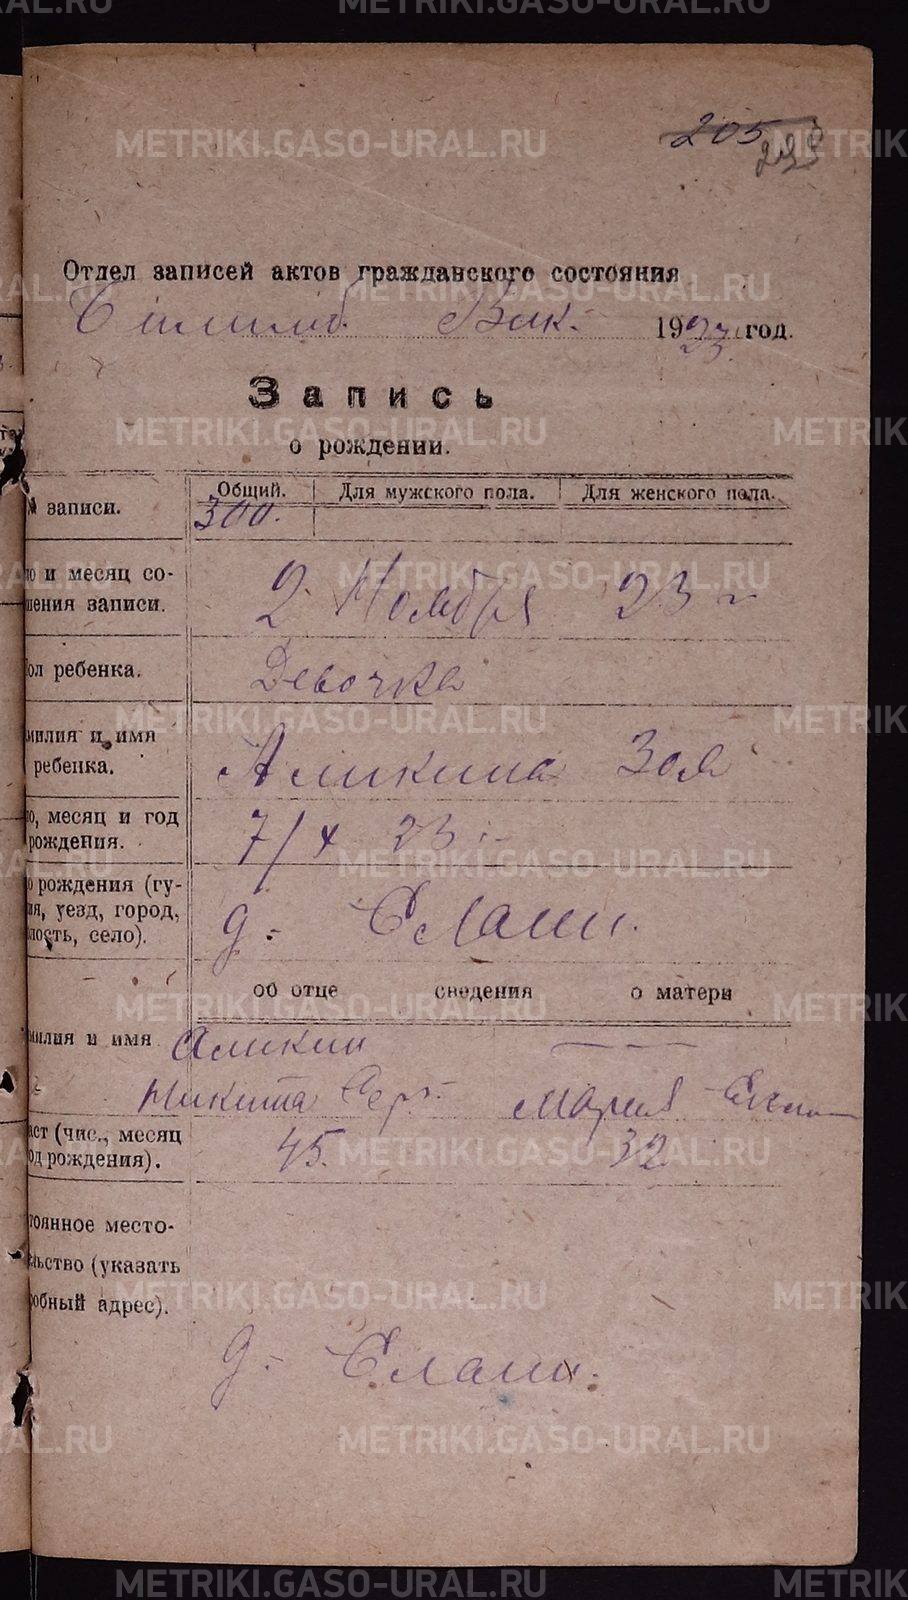 METRIKI.GASO-URAL.RU
205
Отдел записей актов гражданского состояния
Вик. 1923 год.
Запись
о рождении.
Общий. Для мужского пола. Для женского пола.
№ записи. 300.
но и месяц со-
шения записи. 2 Ноября 23 г
ол ребенка. Девочка
милия и имя
ребенка. Аликина Зоя
о, месяц и год
рождения. 7/X 23 г.
о рождения (гу-
ия, уезд, город,
лость, село). д. Елани.
об отце сведения о матери
милия и имя Аликин —
Никита Сер. Мария
аст (чис., месяц
од рождения). 45. 32
тоянное место-
льство (указать
обный адрес).
д. Елани.